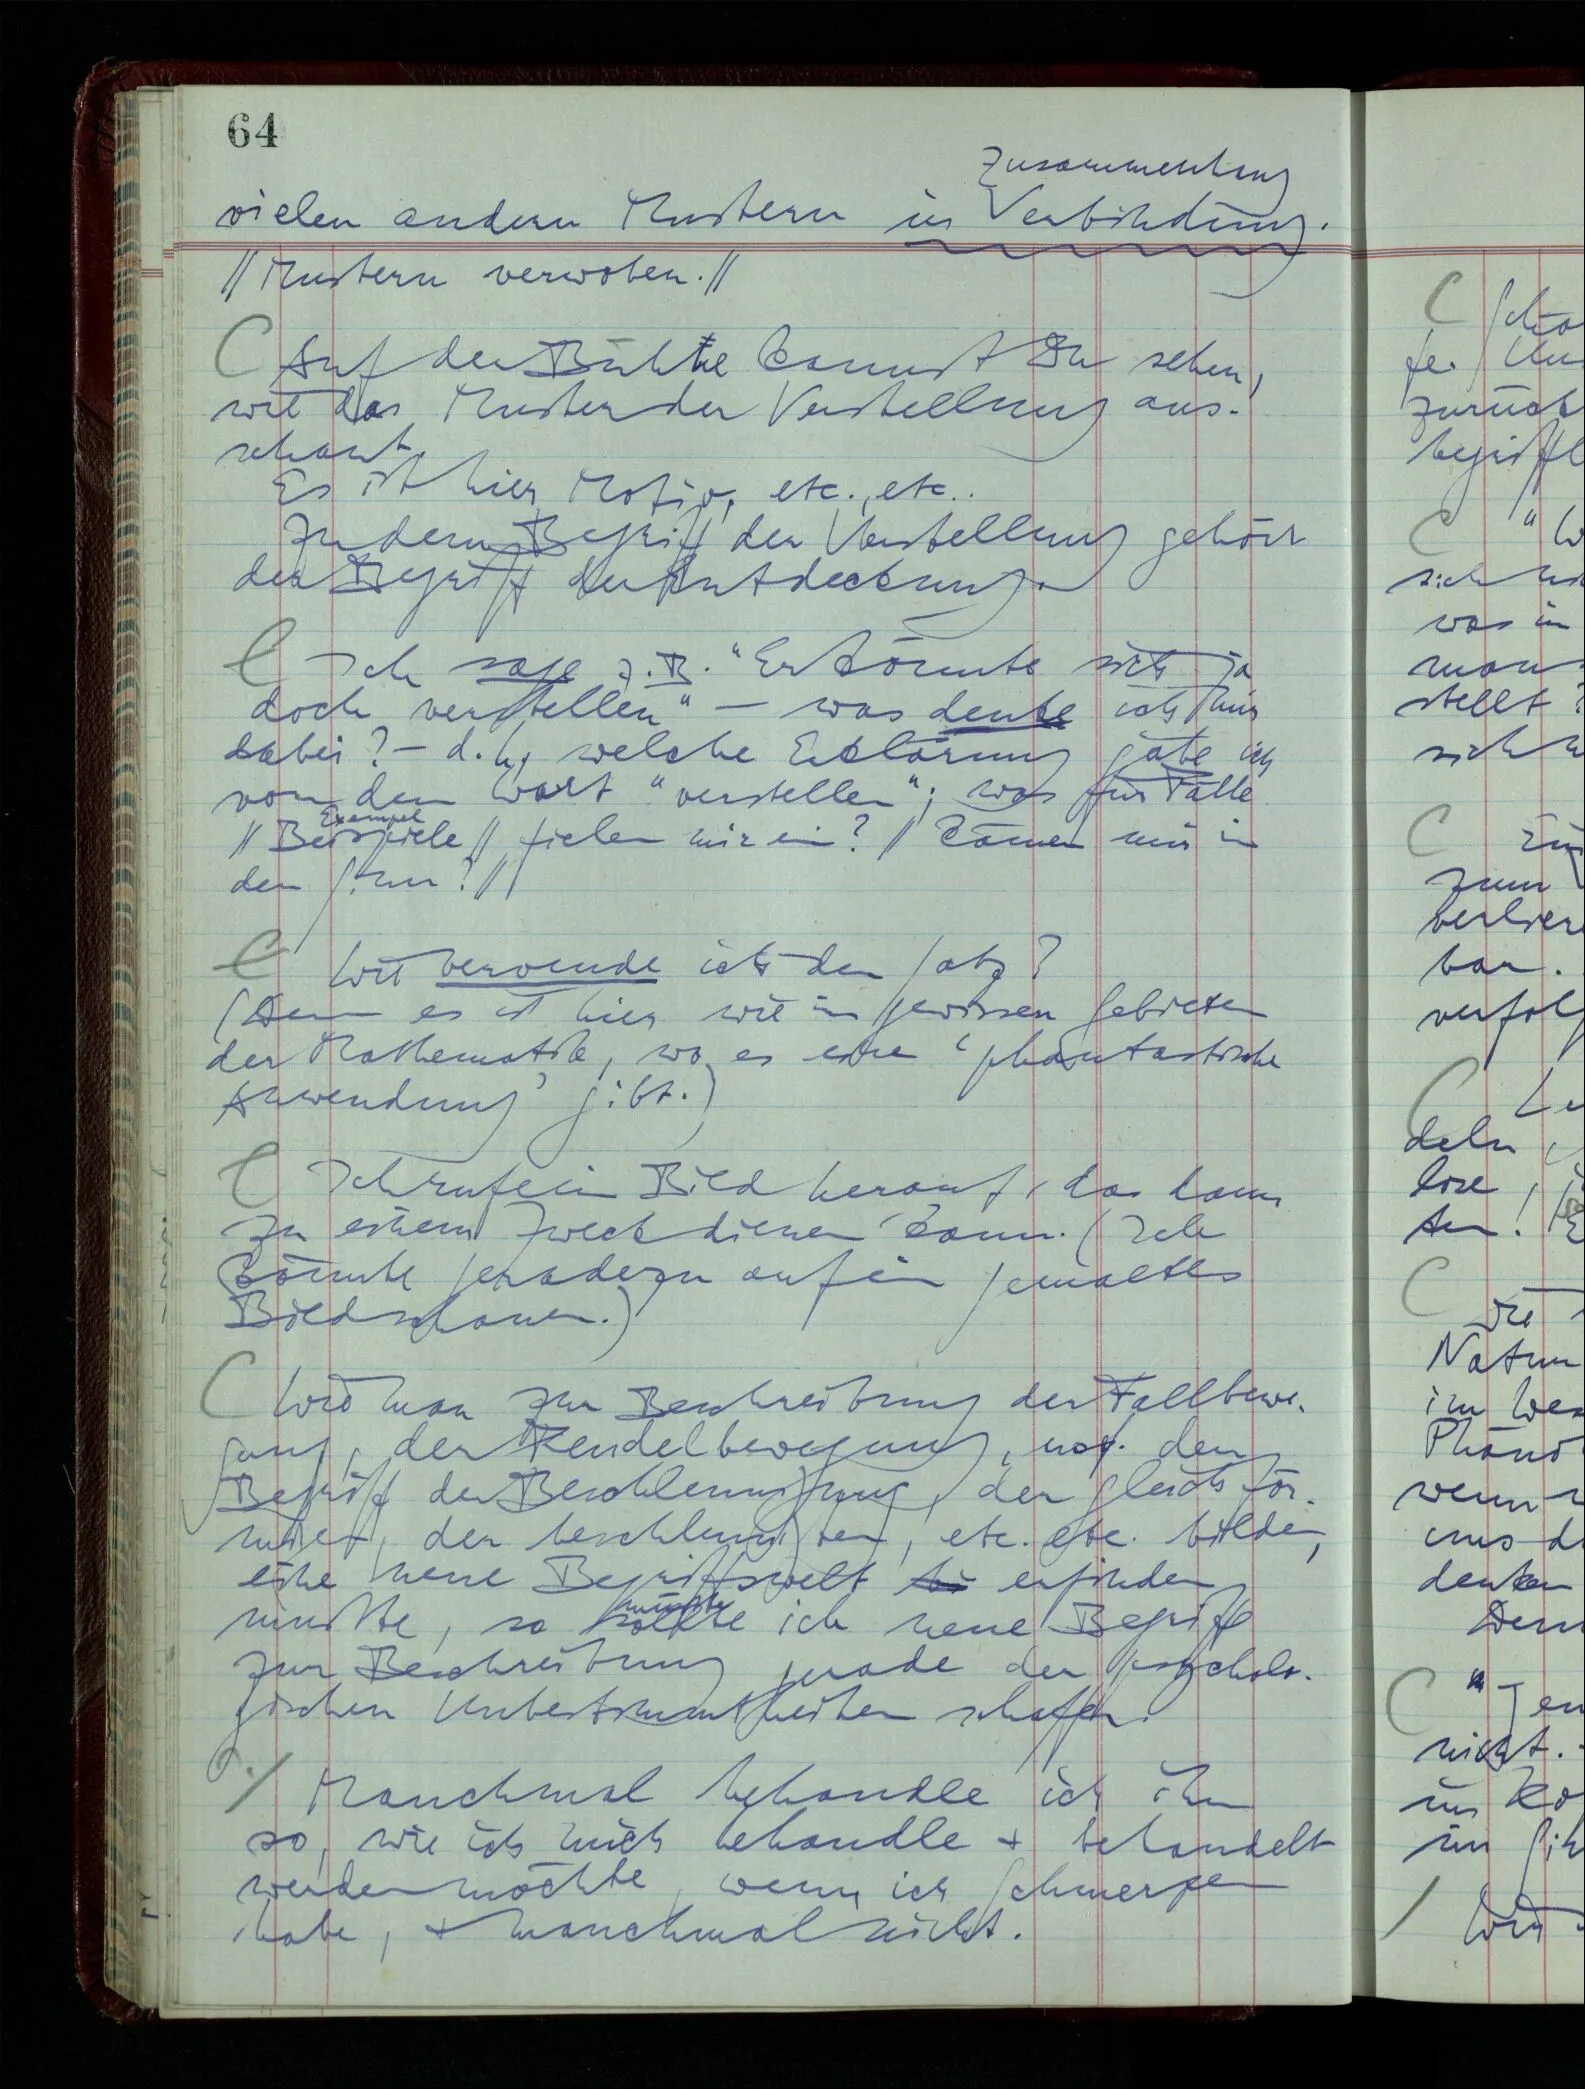 64
Zusammenhang
vielen andern Mustern in Verbindung.
// Mustern verwoben. //
C Auf der Bühne kannst Du sehen,
wie das Muster der Verstellung aus-
schaut.
Es ist hier Motiv, etc., etc..
Zu dem Begriff der Verstellung gehört
der Begriff der Entdeckung.
C Ich sage z.B. "Er könnte sich ja
doch verstellen" — was denke ich mir
dabei? – d.h., welche Erklärung gäbe ich
von dem Wort "verstellen"; was für Fälle
Exempel
// Beispiele // fielen mir ein? // kämen mir in
den Sinn? //
C Wie verwende ich den Satz?
(Denn es ist hier wie in gewissen Gebieten
der Mathematik, wo es eine 'phantastische
Anwendung' gibt.)
C Ich rufe ein Bild herauf, das dann
zu einem Zweck dienen kann. (Ich
könnte geradezu auf ein gemaltes
Bild schauen.)
C Wie man zur Beschreibung der Fallbewe-
gung, der Pendelbewegung, usf. den
Begriff der Beschleunigung, der gleichför-
migen, der beschleunigten, etc. etc. bilden,
eine neue Begriffswelt erfinden
müsste
mußte, so sollte ich neue Begriffe
zur Beschreibung gerade der psycholo-
gischen Unbestimmtheiten schaffen.
/ Manchmal behandle ich ihn
so, wie ich mich behandle + behandelt
werden möchte, wenn ich Schmerzen
habe, + manchmal nicht.
C
zurück
C "W
was in
stellt?
C
zum
bar.
C
C
wie
Natur
wenn
C
nicht.
im
/ Wie